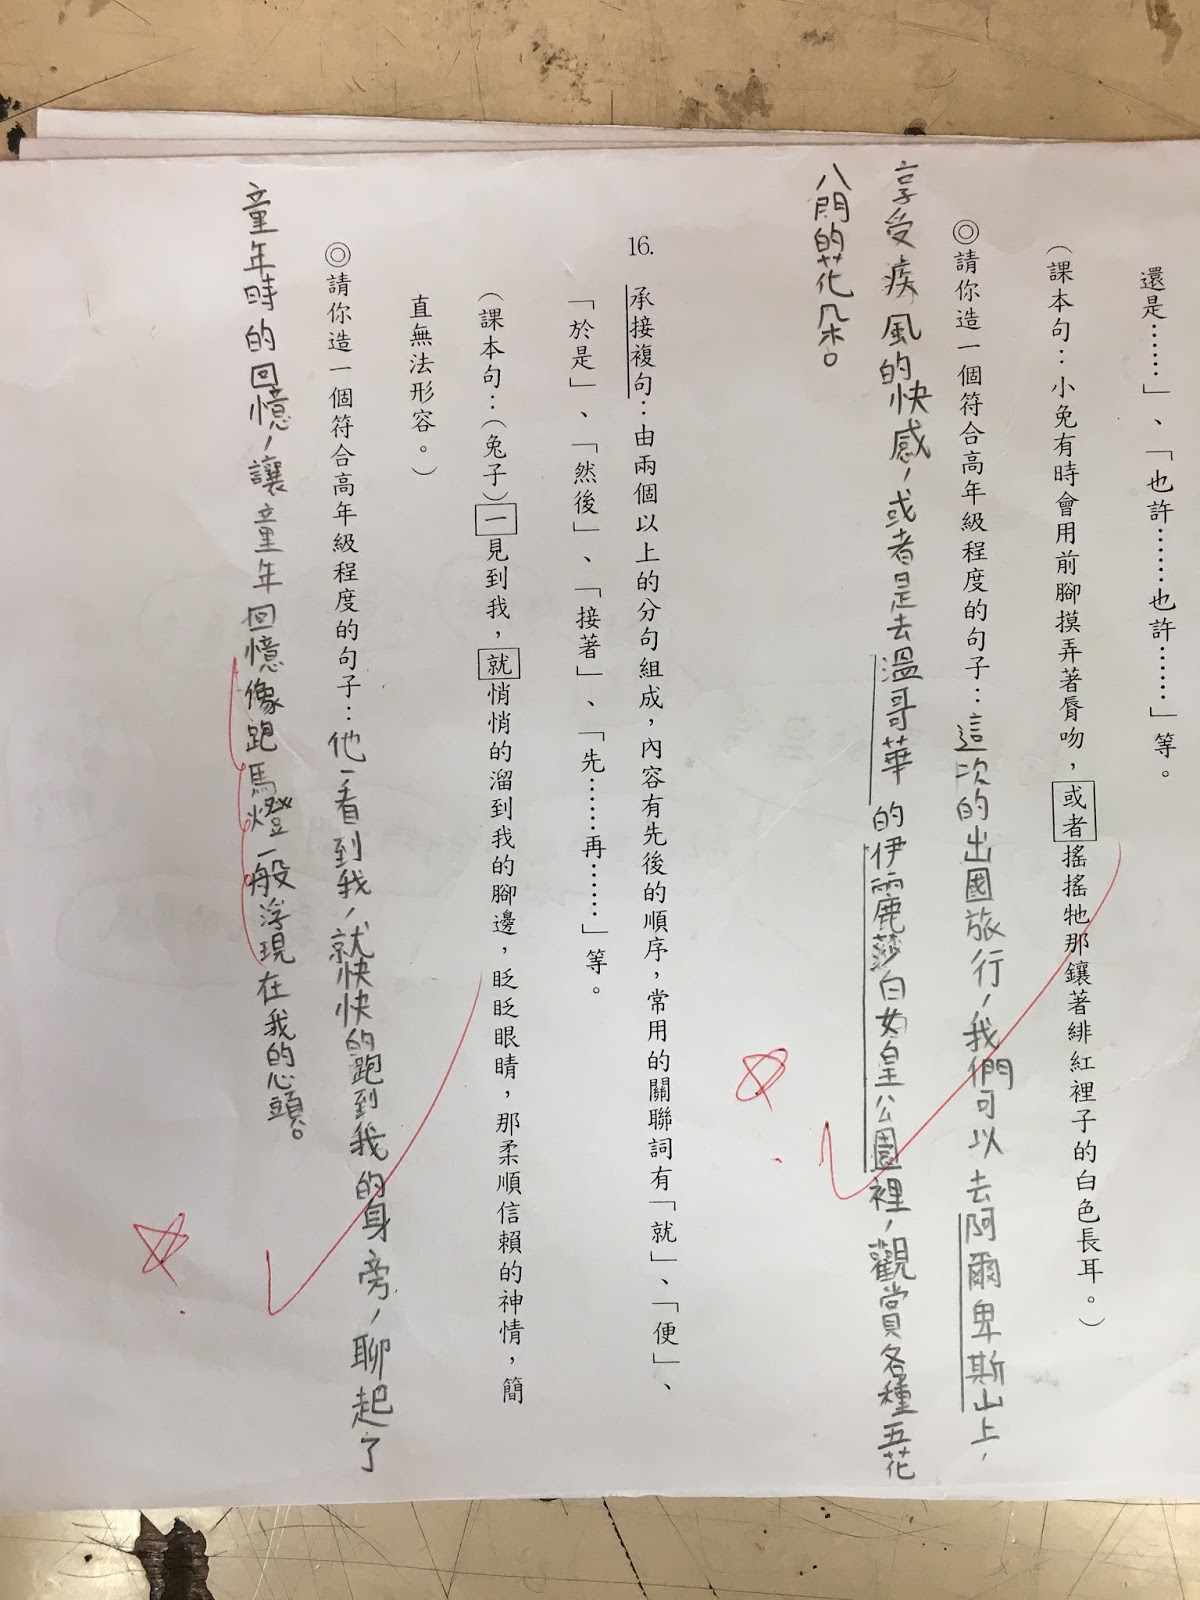 還是⋯⋯」、「也許⋯⋯也許⋯⋯」等。
（課本句：小兔有時會用前腳摸弄著脣吻，或者搖搖牠那鑲著緋紅裡子的白色長耳。）
◎請你造一個符合高年級程度的句子：這次的出國旅行，我們可以去阿爾卑斯山上，
享受疾風的快感，或者是去溫哥華的伊麗莎白女皇公園裡，觀賞各種五花
八門的花朵。
16. 承接複句：由兩個以上的分句組成，內容有先後的順序，常用的關聯詞有「就」、「便」、
「於是」、「然後」、「接著」、「先⋯⋯再⋯⋯」等。
（課本句：（兔子）一見到我，就悄悄的溜到我的腳邊，眨眨眼睛，那柔順信賴的神情，簡
直無法形容。）
◎請你造一個符合高年級程度的句子：他一看到我，就快快的跑到我的身旁，聊起了
童年時的回憶，讓童年回憶像跑馬燈一般浮現在我的心頭。